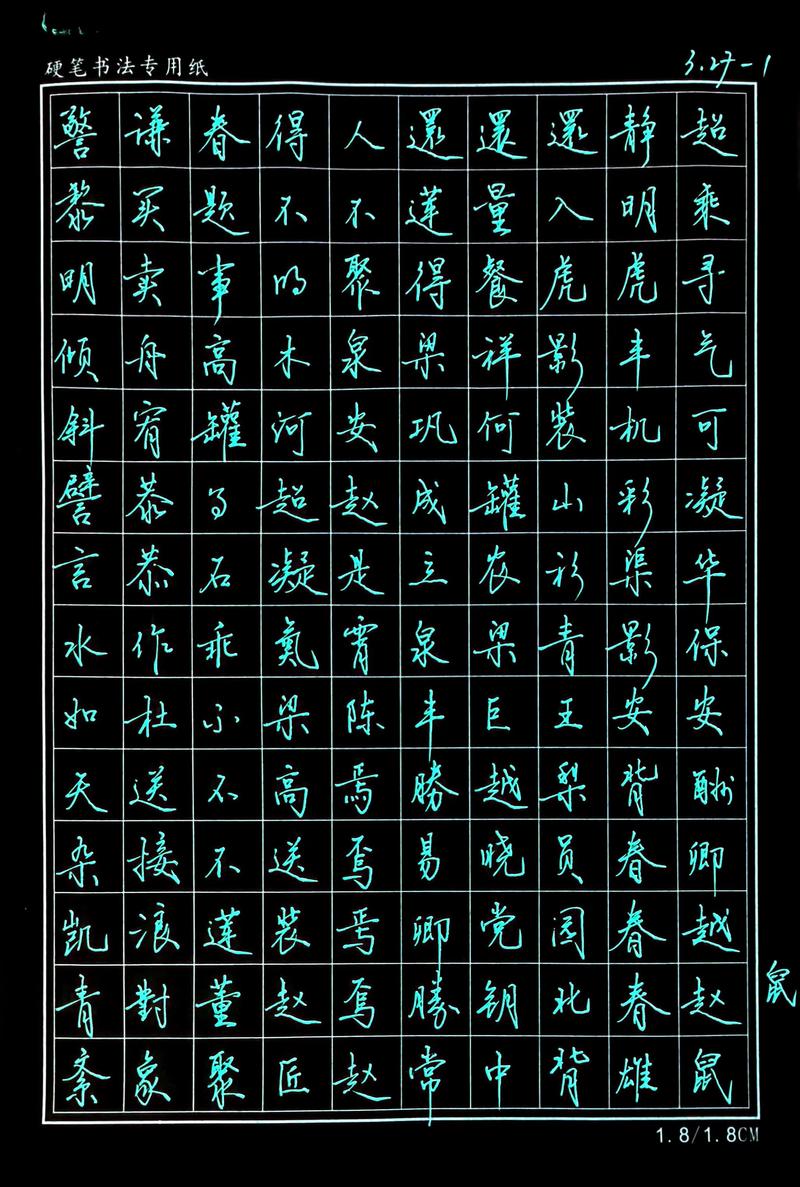 硬笔书法专用纸
3.27-1
警谦春得人還還還静超
黎买题不不莲量入明乘
明卖事的聚得餐虎虎寻
倾舟高木泉梁祥影丰气
斜宥罐河安巩何装机可
譬恭了超赵成罐山彩凝
言恭石凝是立农衫渠华
水作乖氦霄泉梁青影保
如杜小梁陈丰巨王安安
天送不高焉勝越梨背酬
杂接不送焉易晓员春卿
凯浪莲装焉卿党园春越
青對董赵焉勝钥北春赵
紊象聚匠赵常中背雄鼠
鼠
1.8/1.8CM